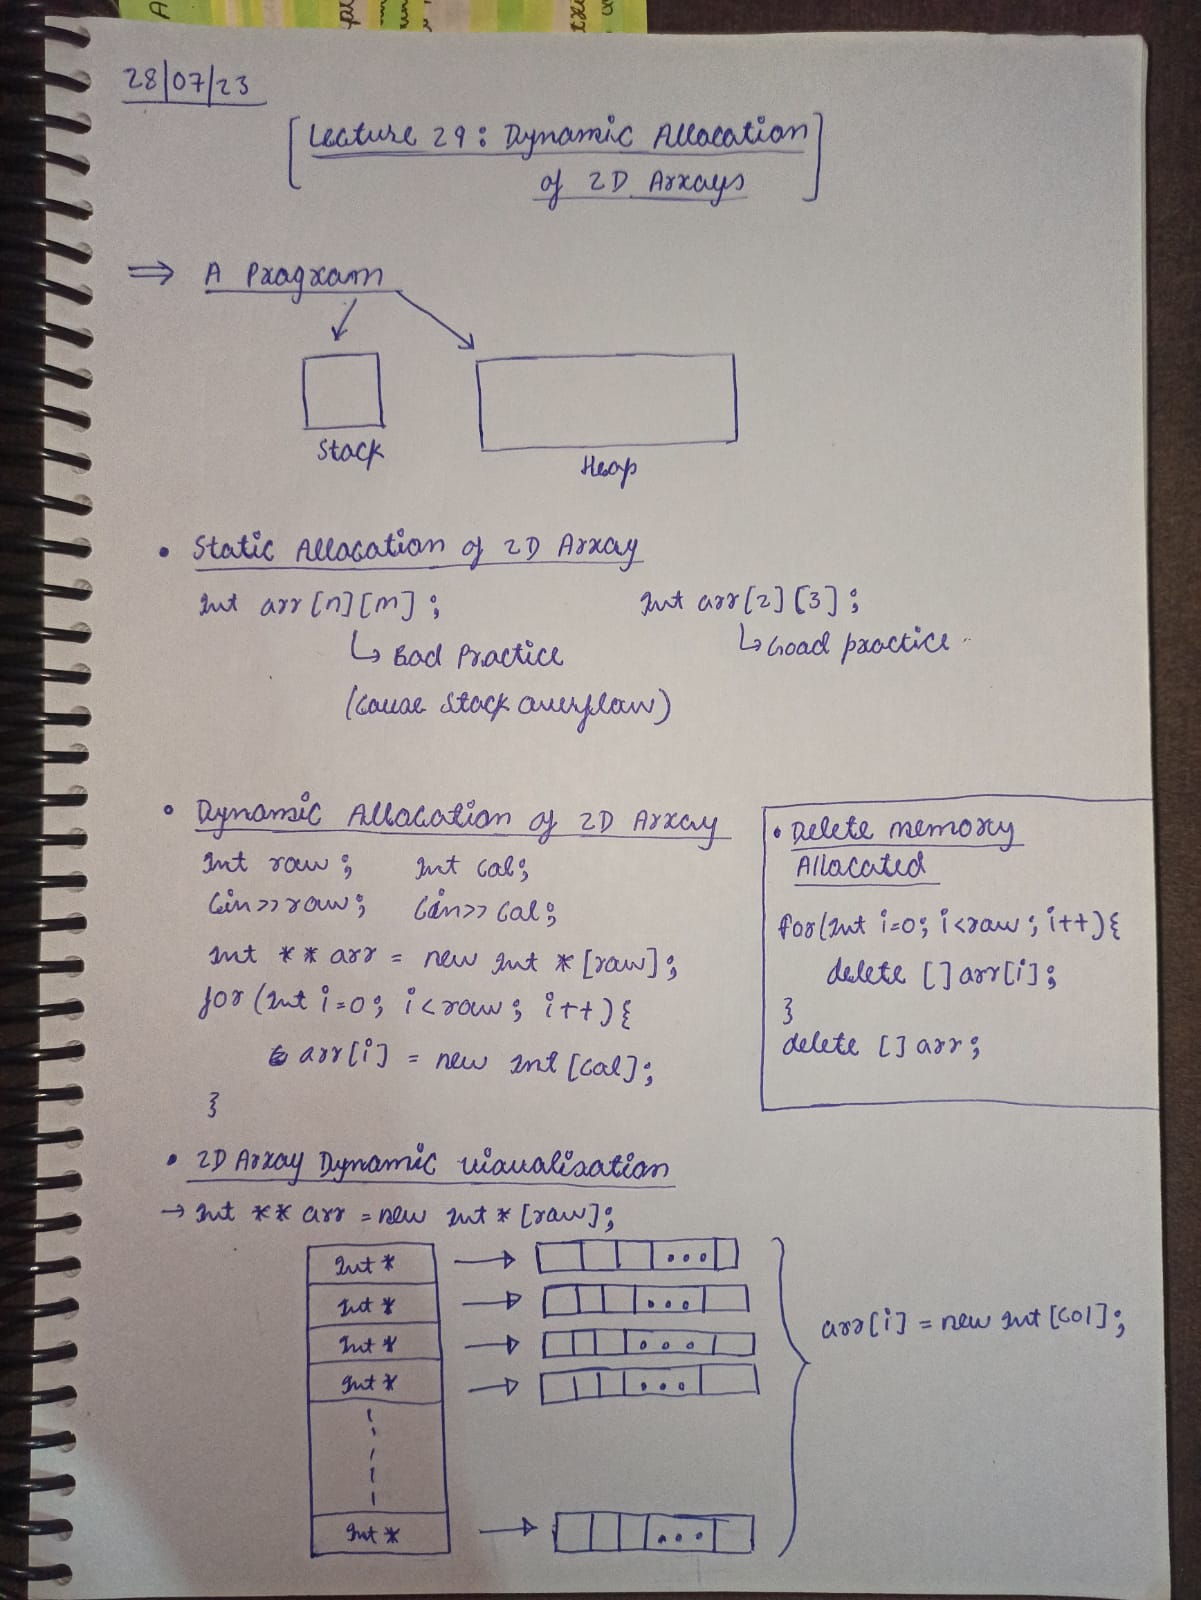 28/07/23
[Lecture 29: Dynamic Allocation
of 2D Arrays]
⇒ A Program
Stack
Heap
• Static Allocation of 2D Array
Int arr[n][m]; Int arr[2][3];
↳ Bad Practice ↳ Good practice
(Cause Stack overflow)
• Dynamic Allocation of 2D Array
Int row; Int Col;
Cin>>row; Cin>> Col;
Int ** arr = new Int * [row];
for (Int i=0; i<row; i++){
arr[i] = new Int [Col];
}
• Delete memory
Allocated
for(Int i=0; i<row; i++){
delete []arr[i];
}
delete [] arr;
• 2D Array Dynamic visualisation
→ Int ** arr = new Int * [row];
Int *
Int *
Int *
Int *
Int *
arr[i] = new Int [Col];